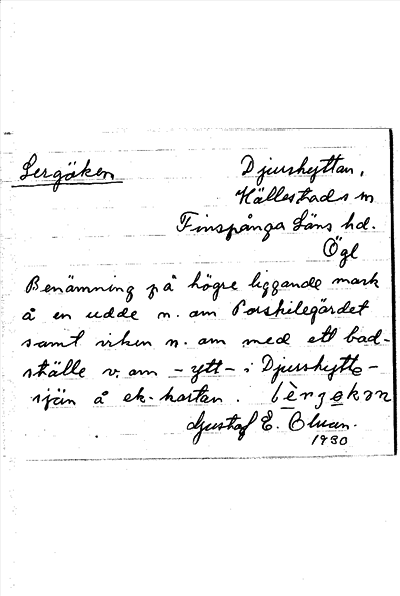 Lergöken
Djurshyttan,
Hällestads sn
Finspånga Läns hd.
Ögl
Benämning på högre liggande mark
å en udde n. om Porskilegärdet
samt viken n. om med ett bad-
ställe v. om -ytt- i Djurshytte-
sjön å ek-kartan.
Gustaf E. Olsson.
1930